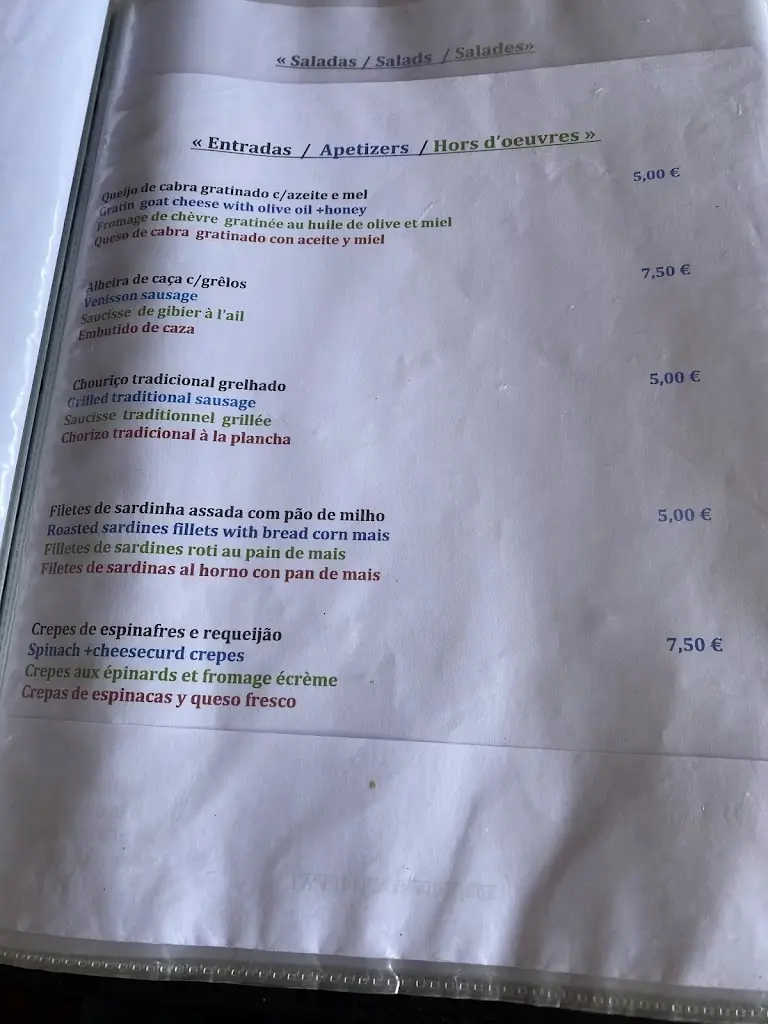 « Saladas / Salads / Salades»
« Entradas / Apetizers / Hors d'oeuvres »
Queijo de cabra gratinado c/azeite e mel 5,00 €
Gratin goat cheese with olive oil +honey
Fromage de chèvre gratinée au huile de olive et miel
Queso de cabra gratinado con aceite y miel
Alheira de caça c/grêlos 7,50 €
Venisson sausage
Saucisse de gibier à l'ail
Embutido de caza
Chouriço tradicional grelhado 5,00 €
Grilled traditional sausage
Saucisse traditionnel grillée
Chorizo tradicional à la plancha
Filetes de sardinha assada com pão de milho 5,00 €
Roasted sardines fillets with bread corn mais
Filletes de sardines roti au pain de mais
Filetes de sardinas al horno con pan de mais
Crepes de espinafres e requeijão 7,50 €
Spinach +cheesecurd crepes
Crepes aux épinards et fromage écrème
Crepas de espinacas y queso fresco